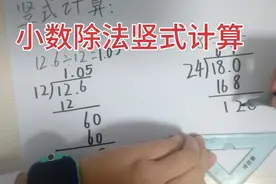 竖式计算:
小数除法竖式计算
12.6÷12=1.05
1.05
12 12.6
12
60
60
24 18.0
168
12